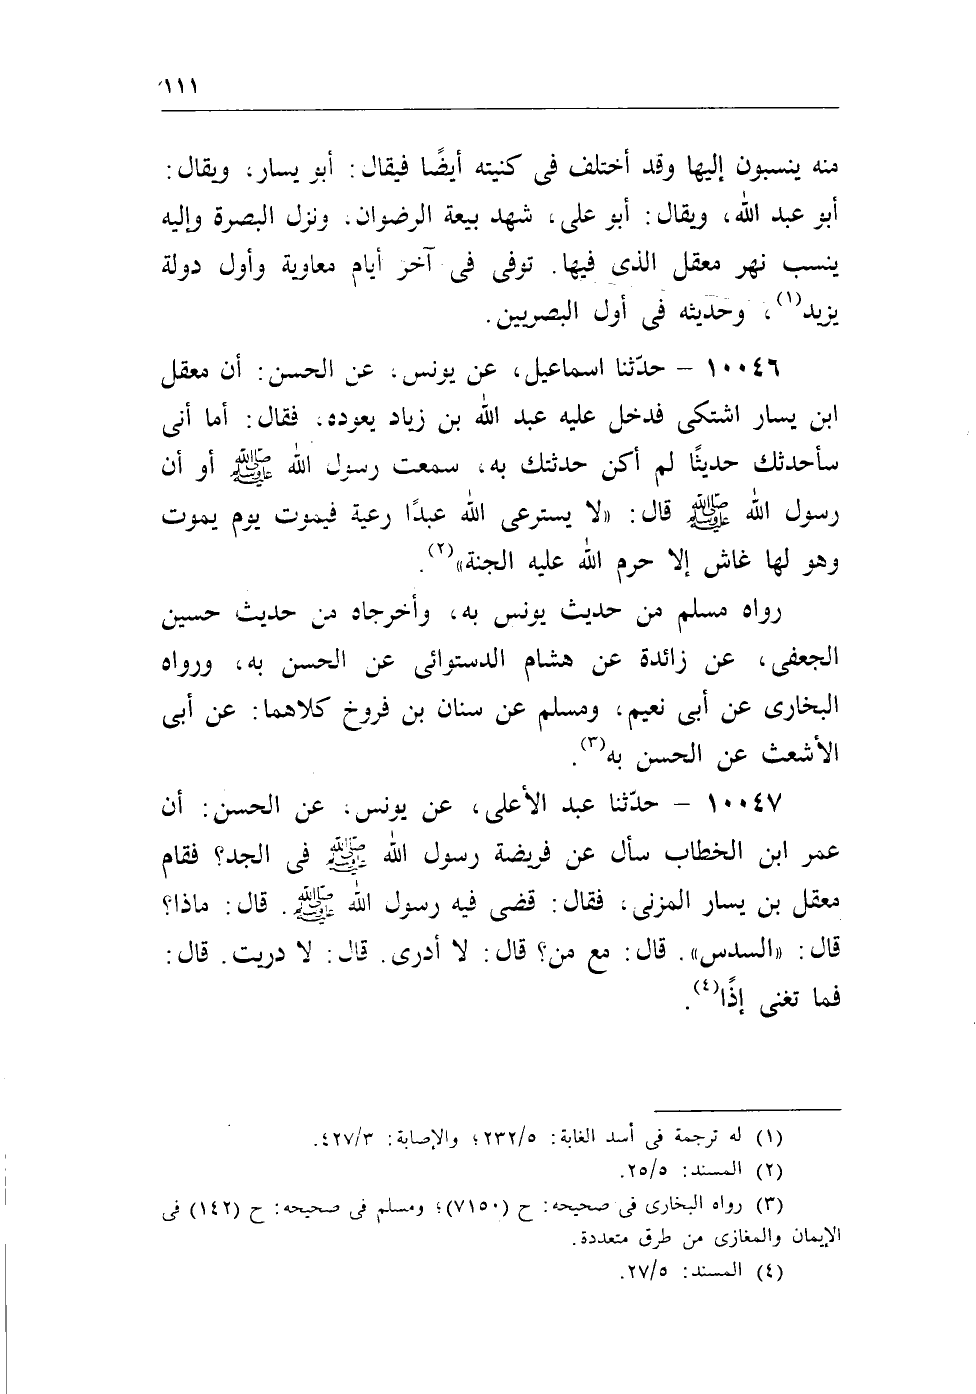 ١١١
منه ينسبون إليها وقد أختلف فى كنيته أيضًا فيقال: أبو يسار، ويقال:
أبو عبد الله، ويقال: أبو على، شهد بيعة الرضوان. ونزل البصرة وإليه
ينسب نهر معقل الذى فيها. توفى فى آخر أيام معاوية وأول دولة
يزيد(١)، وحديثه فى أول البصريين.
١٠٠٤٦ – حدّثنا اسماعيل، عن يونس، عن الحسن: أن معقل
ابن يسار اشتكى فدخل عليه عبد الله بن زياد يعوده، فقال: أما أنى
سأحدثك حديثًا لم أكن حدثتك به، سمعت رسول الله ﷺ أو أن
رسول الله ﷺ قال: «لا يسترعى الله عبدًا رعية فيموت يوم يموت
وهو لها غاش إلا حرم الله عليه الجنة»(٢).
رواه مسلم من حديث يونس به، وأخرجاه من حديث حسين
الجعفى، عن زائدة عن هشام الدستوائى عن الحسن به، ورواه
البخارى عن أبى نعيم، ومسلم عن سنان بن فروخ كلاهما: عن أبى
الأشعث عن الحسن به(٣).
١٠٠٤٧ – حدّثنا عبد الأعلى، عن يونس، عن الحسن: أن
عمر ابن الخطاب سأل عن فريضة رسول الله ﷺ فى الجد؟ فقام
معقل بن يسار المزنى، فقال: قضى فيه رسول الله ﷺ. قال: ماذا؟
قال: «السدس». قال: مع من؟ قال: لا أدرى. قال: لا دريت. قال:
فما تغنى إذًا(٤).
(١) له ترجمة فى أسد الغابة: ٢٣٢/٥؛ والإصابة: ٤٢٧/٣.
(٢) المسند: ٢٥/٥.
(٣) رواه البخارى فى صحيحه: ح (٧١٥٠)؛ ومسلم فى صحيحه: ح (١٤٢) فى
الإيمان والمغازى من طرق متعددة.
(٤) المسند: ٢٧/٥.